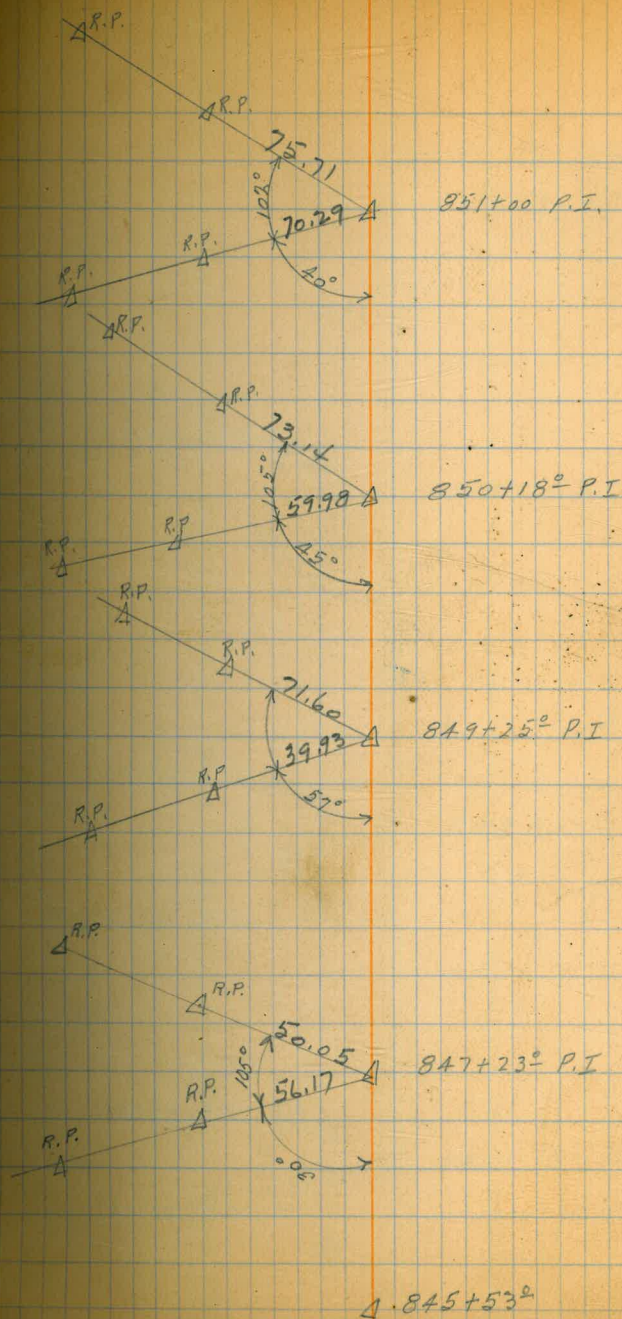 R.P.
R.P.
75.71
102°
70.29
851+00 P.I.
R.P.
40°
R.P.
R.P.
R.P.
73.14
105°
59.98
850+18⁰ P.I
R.P
45°
R.P.
R.P.
R.P.
71.60
39.93
849+25⁰ P.I
R.P
57°
R.P.
R.P.
R.P.
50.05
105°
56.17
847+23⁰ P.I
R.P.
R.P.
30°
845+53⁰